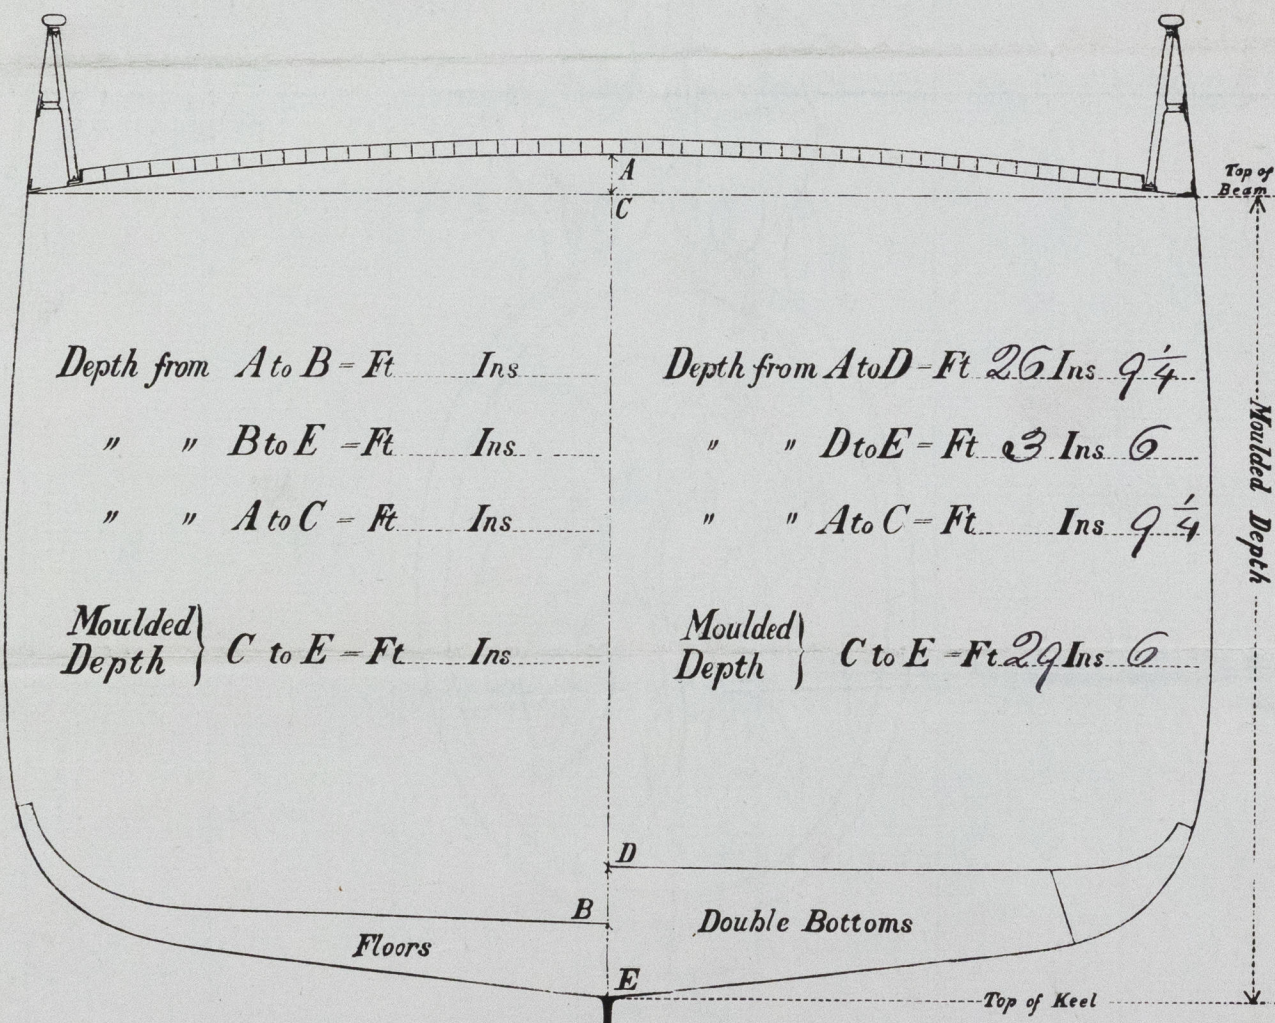 Top of
Beam
A
C
Depth from A to B = Ft Ins
" " B to E = Ft Ins
" " A to C = Ft Ins
Moulded
Depth } C to E = Ft Ins
Depth from A to D = Ft 26 Ins 9 1/4
" " D to E = Ft 3 Ins 6
" " A to C = Ft Ins 9 1/4
Moulded
Depth } C to E = Ft 29 Ins 6
Moulded Depth
D
B
Double Bottoms
Floors
E
Top of Keel